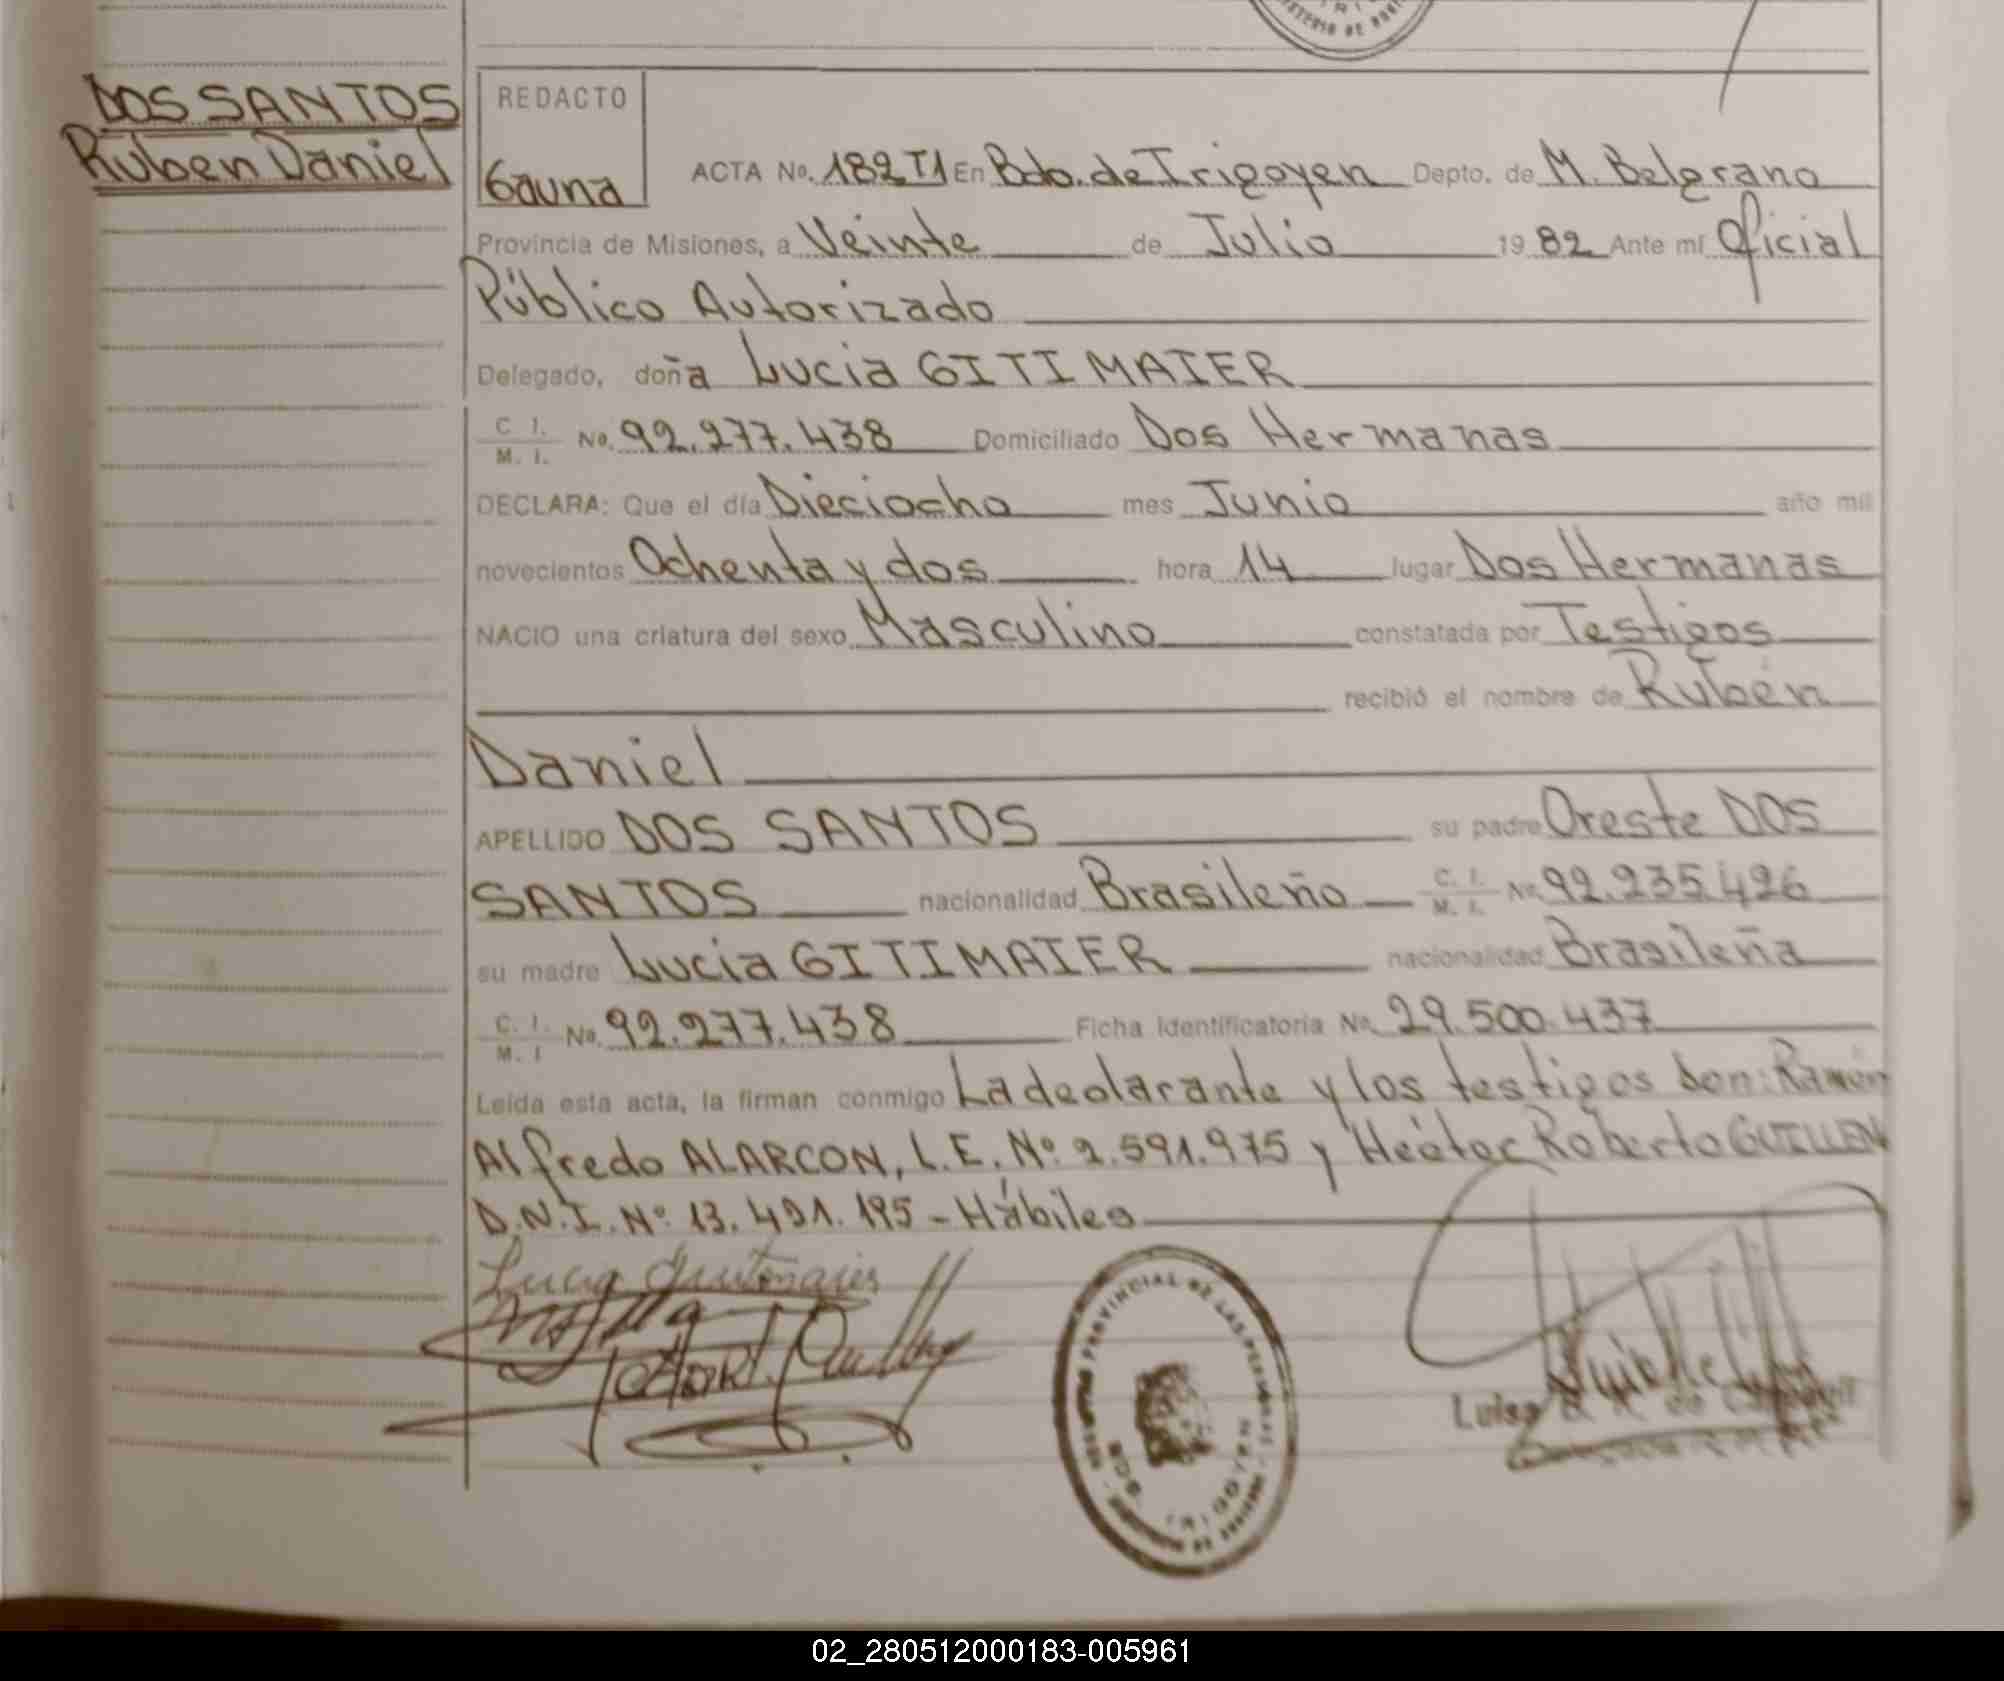 DOS SANTOS
Ruben Daniel
REDACTO
Gauna
ACTA No. 182 T1 En Bdo. de Irigoyen Depto. de M. Belgrano
Provincia de Misiones, a Veinte de Julio 1982 Ante mí Oficial
Público Autorizado
Delegado, doña Lucia GITIMAIER
C. I. M. I. No. 92.277.438 Domiciliado Dos Hermanas
DECLARA: Que el día Dieciocho mes Junio año mil
novecientos Ochenta y dos hora 14 lugar Dos Hermanas
NACIO una criatura del sexo Masculino constatada por Testigos
recibió el nombre de Rubén
Daniel
APELLIDO DOS SANTOS su padre Oreste DOS
SANTOS nacionalidad Brasileño C. I. M. I. No. 92.235.426
su madre Lucia GITIMAIER nacionalidad Brasileña
C. I. M. I No. 92.277.438 Ficha Identificatoria No. 29.500.437
Leída esta acta, la firman conmigo La declarante y los testigos Don: Ramón
Alfredo ALARCON, L.E. Nº 2.591.975 y Héctor Roberto GUILLEN
D.N.I. Nº 13.491.195 - Hábiles
Lucia
PROVINCIAL DE LAS PERSONAS
Luisa
02_280512000183-005961